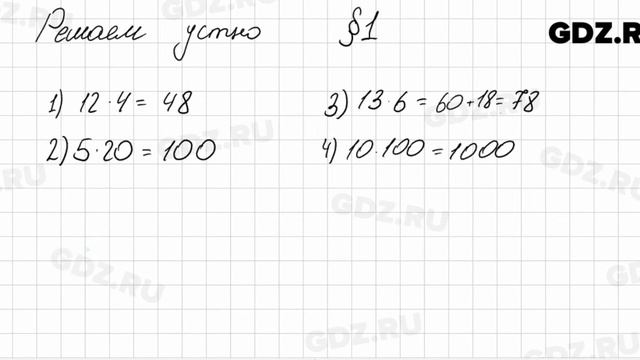 Решаем устно §1
GDZ.RU
1) 12·4 = 48
2) 5·20 = 100
3) 13·6 = 60+18 = 78
4) 10·100 = 1000
GDZ.RU
GDZ.RU
GDZ.RU
GDZ.RU
GDZ.RU
GDZ.RU